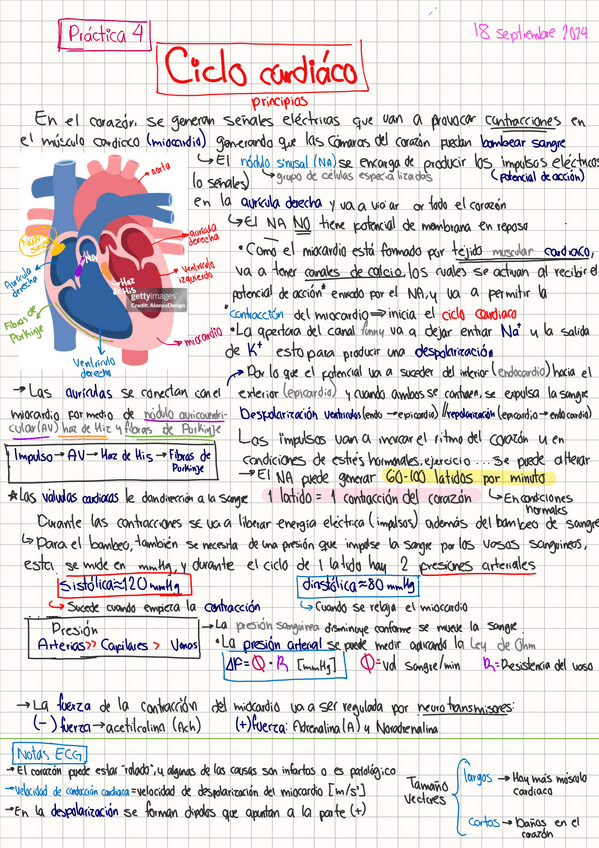 Práctica 4
18 septiembre 2024
Ciclo cardiáco
principios
En el corazón, se generan señales eléctricas que van a provocar contracciones en
el músculo cardíaco (miocardio) generando que las cámaras del corazón puedan bombear sangre
↳ El nódulo sinusal (NA) se encarga de producir los impulsos eléctricos
(o señales) ↳ grupo de células especializadas (potencial de acción)
en la aurícula derecha y va a viajar por todo el corazón
↳ El NA NO tiene potencial de membrana en reposo
• Como el miocardio está formado por tejido muscular cardiaco,
va a tener canales de calcio, los cuales se actuan al recibir el
potencial de acción* enviado por el NA, y va a permitir la
contracción del miocardio ⇒ inicia el ciclo cardiaco
• La apertura del canal funny va a dejar entrar Na⁺ y la salida
de K⁺ esto para producir una despolarización
aorta
Nodo sinusal
NAV
aurícula derecha
Aurícula derecha
Ventrículo izquierdo
Haz de His
gettyimages
Credit: AlonzoDesign
Fibras de Purkinje
miocardio
Ventrículo derecho
→ Por lo que el potencial va a suceder del interior (endocardio) hacia el
exterior (epicardio) y cuando ambos se contraen, se expulsa la sangre
Despolarización ventrículos (endo → epicardio) // repolarización (epicardio → endocardio)
→ Las aurículas se conectan con el
miocardio por medio de nódulo auricoventri-
cular (AV) haz de Hiz y fibras de Purkinje
Impulso → AV → Haz de His → Fibras de
Purkinje
Los impulsos van a marcar el ritmo del corazón y en
condiciones de estrés hormonales, ejercicio ... se puede alterar
→ El NA puede generar 60-100 latidos por minuto
1 latido = 1 contracción del corazón
↳ En condiciones
normales
★ Las válvulas cardiacas le dan dirección a la sangre
Durante las contracciones se va a liberar energía eléctrica (impulsos) además del bombeo de sangre
↳ Para el bombeo, también se necesita de una presión que impulse la sangre por los vasos sanguíneos,
esta, se mide en mmHg, y durante el ciclo de 1 latido hay 2 presiones arteriales
sistólica ≈ 120 mmHg
diastólica ≈ 80 mmHg
↳ Sucede cuando empieza la contracción
↳ Cuando se relaja el miocardio
Presión
Arterias >> Capilares > Venas
→ La presión sanguínea disminuye conforme se mueve la sangre
• La presión arterial se puede medir aplicando la Ley de Ohm
ΔP = Q · R [mmHg]
Q = vol sangre/min
R = Resistencia del vaso
→ La fuerza de la contracción del miocardio va a ser regulada por neurotransmisores:
(-) fuerza → acetilcolina (Ach)
(+) fuerza: Adrenalina (A) y Noradrenalina
Notas ECG
→ El corazón puede estar "rotado", y algunas de las causas son infartos o es patológico
→ velocidad de conducción cardiaca = velocidad de despolarización del miocardio [m/s²]
→ En la despolarización se forman dipolos que apuntan a la parte (+)
Tamaño
vectores
largos → Hay más músculo
cardiaco
cortos → Daños en el
corazón